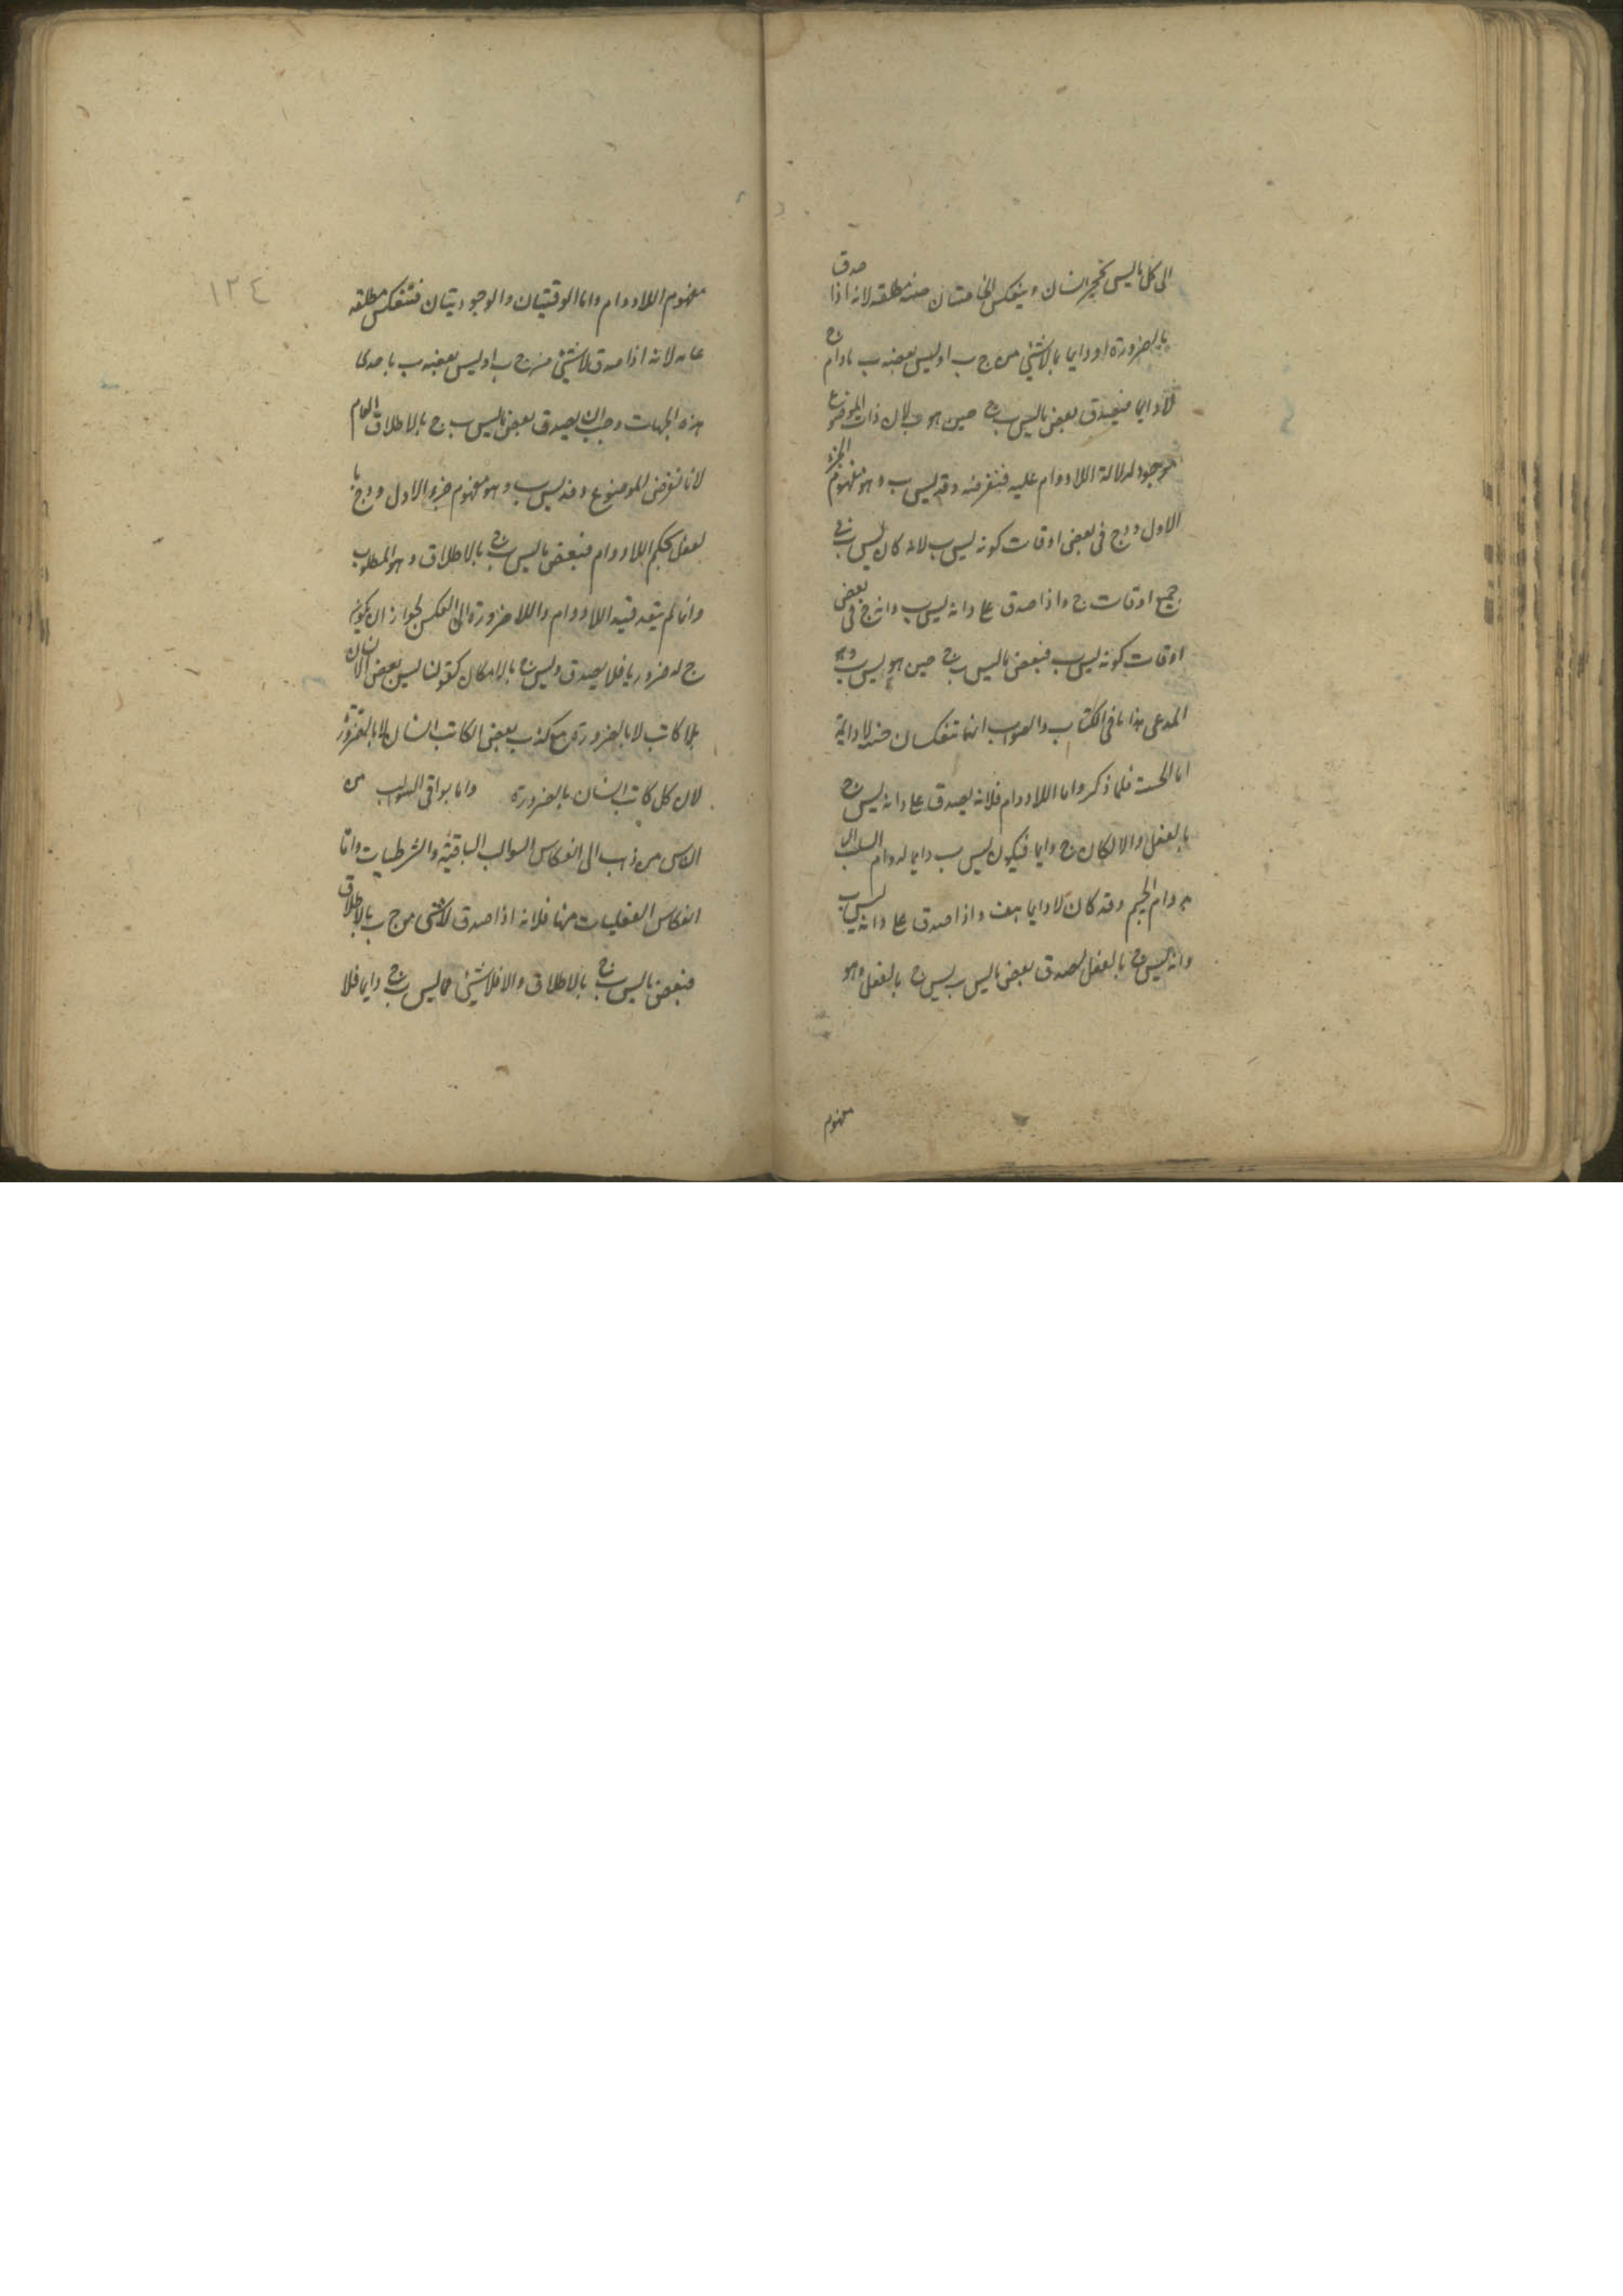 الى كل ما ليس بحجر انسان وينعكس الخاصتان حينية مطلقة لانه اذا صدق
بالضرورة او دايما بالاشئ من ج ب او ليس بعضه ب مادام ج
لادايما فيصدق بعض ما ليس ب ج حين هو ب لان ذات الموضوع
موجود لدلالة اللادوام عليه فنفرضه د فد ليس ب وهو مفهوم الجزء
الاول و د ج في بعض اوقات كونه ليس ب لانه كان ليس ب في
جميع اوقات ج واذا صدق على د انه ليس ب وانه ج في بعض
اوقات كونه ليس ب فبعض ما ليس ب ج حين هو ليس ب وهو
المدعى هذا ما في الكتاب والصواب انهما تنعكسان حينية لادايمة
اما الحينية فلما ذكر واما اللادوام فلانه يصدق على د انه ليس ج
بالفعل والا لكان ج دايما فيكون ليس ب دايما لدوام السلب
بدوام الجيم وقد كان لادايما هف واذا صدق على د انه ليس ب
وانه ليس ج بالفعل لصدق بعض ما ليس ب ليس ج بالفعل وهو
مفهوم
١٢٤
مفهوم اللادوام واما الوقتيتان والوجوديتان فتنعكس مطلقة
عامة لانه اذا صدق لاشئ من ج ب او ليس بعضه ب باحدى
هذه الجهات وجب ان يصدق بعض ما ليس ب ج بالاطلاق العام
لانا نفرض الموضوع د فد ليس ب وهو مفهوم جزء الاول و د ج با
لفعل بحكم اللادوام فبعض ما ليس ب ج بالاطلاق وهو المطلوب
وانما لم يتعد قيد اللادوام واللاضرورة الى العكس لجواز ان يكون
ج له ضروريا فلا يصدق د ليس ج بالامكان كقولنا ليس بعض الانسان
بلا كاتب لا بالضرورة مع كذب بعض الكاتب انسان لا بالضرورة
لان كل كاتب انسان بالضرورة واما بواقى السوالب من
الناس من ذهب الى انعكاس السوالب الباقية والشرطيات واما
انعكاس الفعليات منها فلانه اذا صدق لاشئ من ج ب بالاطلاق
فبعض ما ليس ب ج بالاطلاق والا فلا شئ مما ليس ب ج دايما فلا